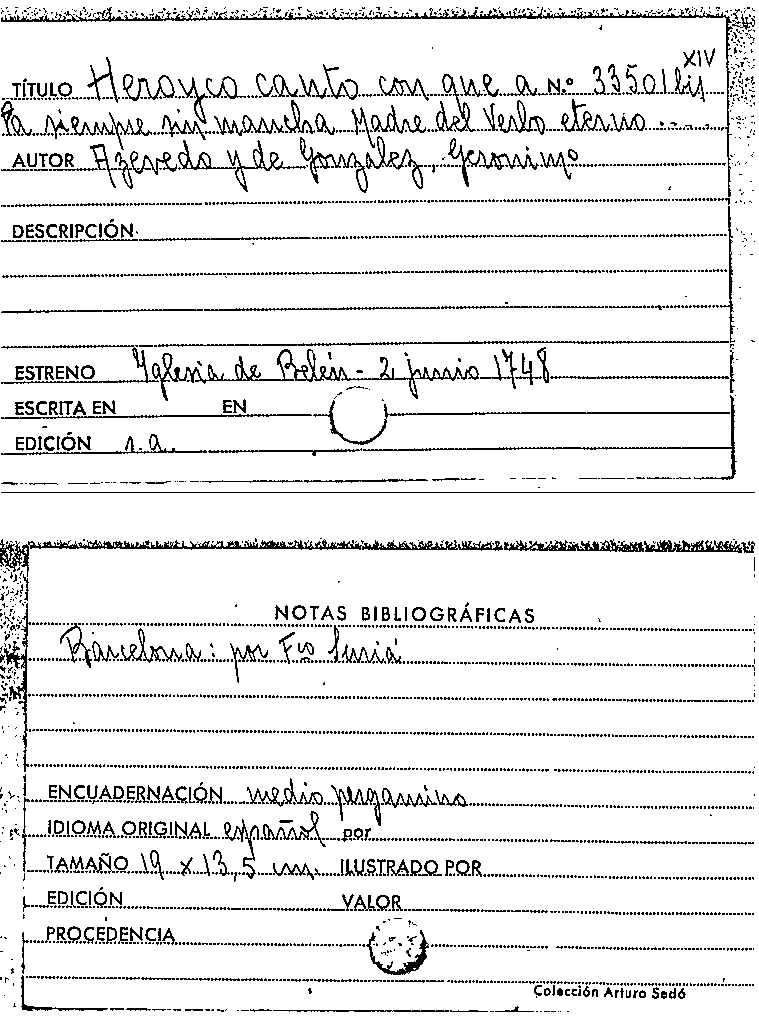 XIV
TÍTULO Heroyco canto con que a N.º 33501 bis
la siempre sin mancha Madre del Verbo eterno ....
AUTOR Azevedo y de González, Geronimo
DESCRIPCIÓN
ESTRENO Yglesia de Belén - 2 junio 1748
ESCRITA EN EN
EDICIÓN s.a.
NOTAS BIBLIOGRÁFICAS
Barcelona: por Fco Suriá
ENCUADERNACIÓN medio pergamino
IDIOMA ORIGINAL español por
TAMAÑO 19 x 13,5 cm. ILUSTRADO POR
EDICIÓN VALOR
PROCEDENCIA
Colección Arturo Sedó